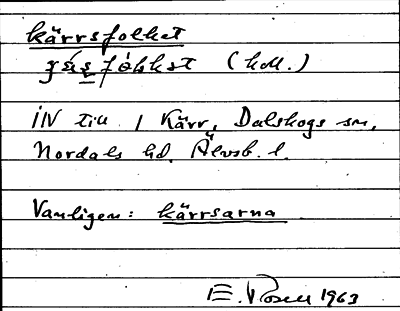 kärrsfolket
(koll.)
IN till / Kärr, Dalskogs sn,
Nordals hd. Älvsb. l.
Vanligen: kärrsarna
E. Rosell 1963